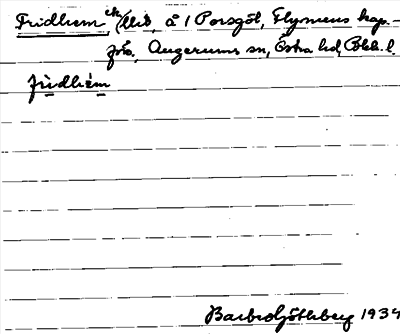 Fridhem, å 1 Porsgöl, Flymens kap.-
förs, Augerums sn, Östra hd, Blek. l.
frìdhém
Barbro Götlberg 1934